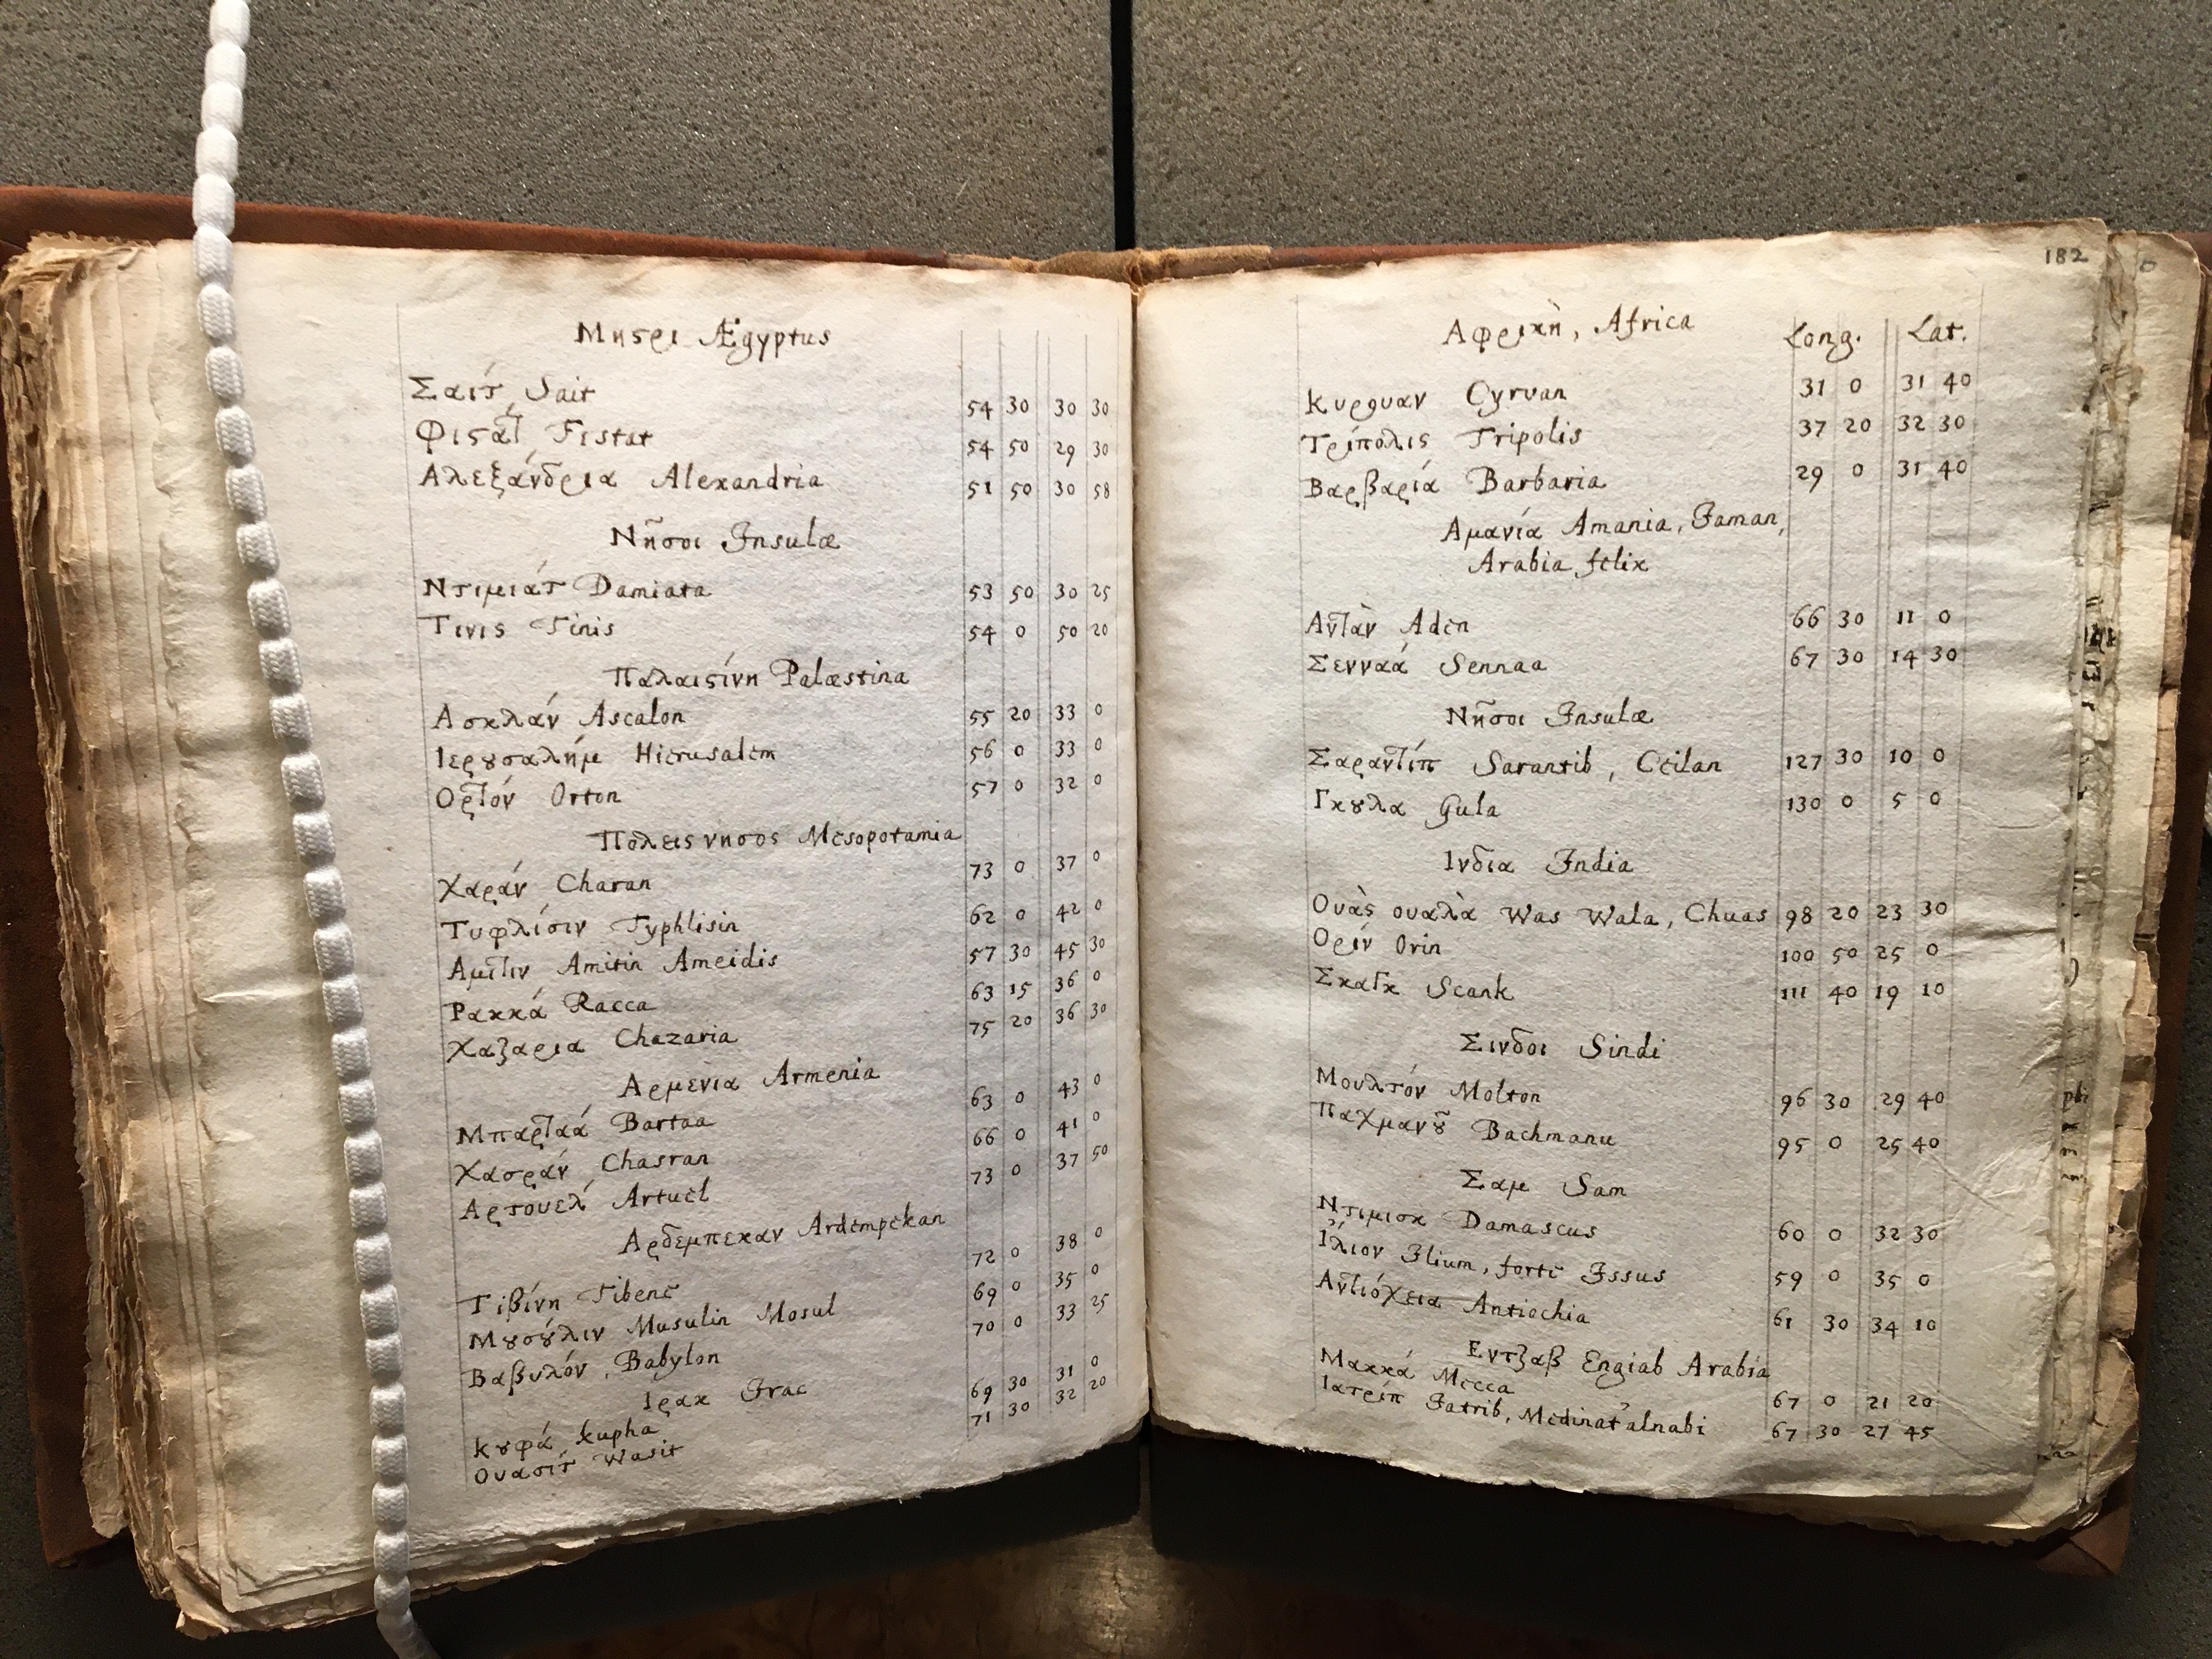 Μησρι Ægyptus
Σαίτ Sait 54 30 30 30
Φιςατ Fistat 54 50 29 30
Αλεξάνδρια Alexandria 51 50 30 58
Νῆσοι Insulæ
Ντιμιάτ Damiata 53 50 30 25
Τινις Tinis 54 0 50 20
Παλαιςίνη Palæstina
Ασκλάν Ascalon 55 20 33 0
Ιερȣσαλήμ Hierusalem 56 0 33 0
Ορτόν Orton 57 0 32 0
Πόλεις νησος Mesopotamia
Χαράν Charan 73 0 37 0
Τυφλίσιν Typhlisin 62 0 42 0
Αμίτιν Amitin Ameidis 57 30 45 30
Ρακκά Racca 63 15 36 0
Χαζαρια Chazaria 75 20 36 30
Αρμενια Armenia
Μπαρταά Bartaa 63 0 43 0
Χασράν Chasran 66 0 41 0
Αρτουελ Artuel 73 0 37 50
Αρδεμπεκαν Ardempekan
Τιβίνη Tibene 72 0 38 0
Μȣσȣ́λιν Musulin Mosul 69 0 35 0
Βαβυλόν Babylon 70 0 33 25
Ιρακ Irac
Κȣφά Kupha 69 30 31 0
Ουασίτ Wasit 71 30 32 20
182
Αφρικὴ, Africa Long. Lat.
Κυρουαν Cyrvan 31 0 31 40
Τρίπολις Tripolis 37 20 32 30
Βαρβαρία Barbaria 29 0 31 40
Αμανία Amania, Jaman,
Arabia felix
Αντὰν Aden 66 30 11 0
Σενναά Sennaa 67 30 14 30
Νῆσοι Insulæ
Σαραντίπ Sarantib, Ceilan 127 30 10 0
Γκȣλα Gula 130 0 5 0
Ινδια India
Ουὰς ουαλὰ Was Wala, Chuas 98 20 23 30
Ορίν Orin 100 50 25 0
Scank 111 40 19 10
Σινδοι Sindi
Μουλτόν Molton 96 30 29 40
Παχμανȣ͂ Bachmanu 95 0 25 40
Σαμ Sam
Ντιμισκ Damascus 60 0 32 30
Ἴλιον Ilium, forte Issus 59 0 35 0
Αντιόχεια Antiochia 61 30 34 10
Εντζαβ Engiab Arabia
Μακκά Mecca 67 0 21 20
Ιατρίπ Jatrib, Medinat'alnabi 67 30 27 45